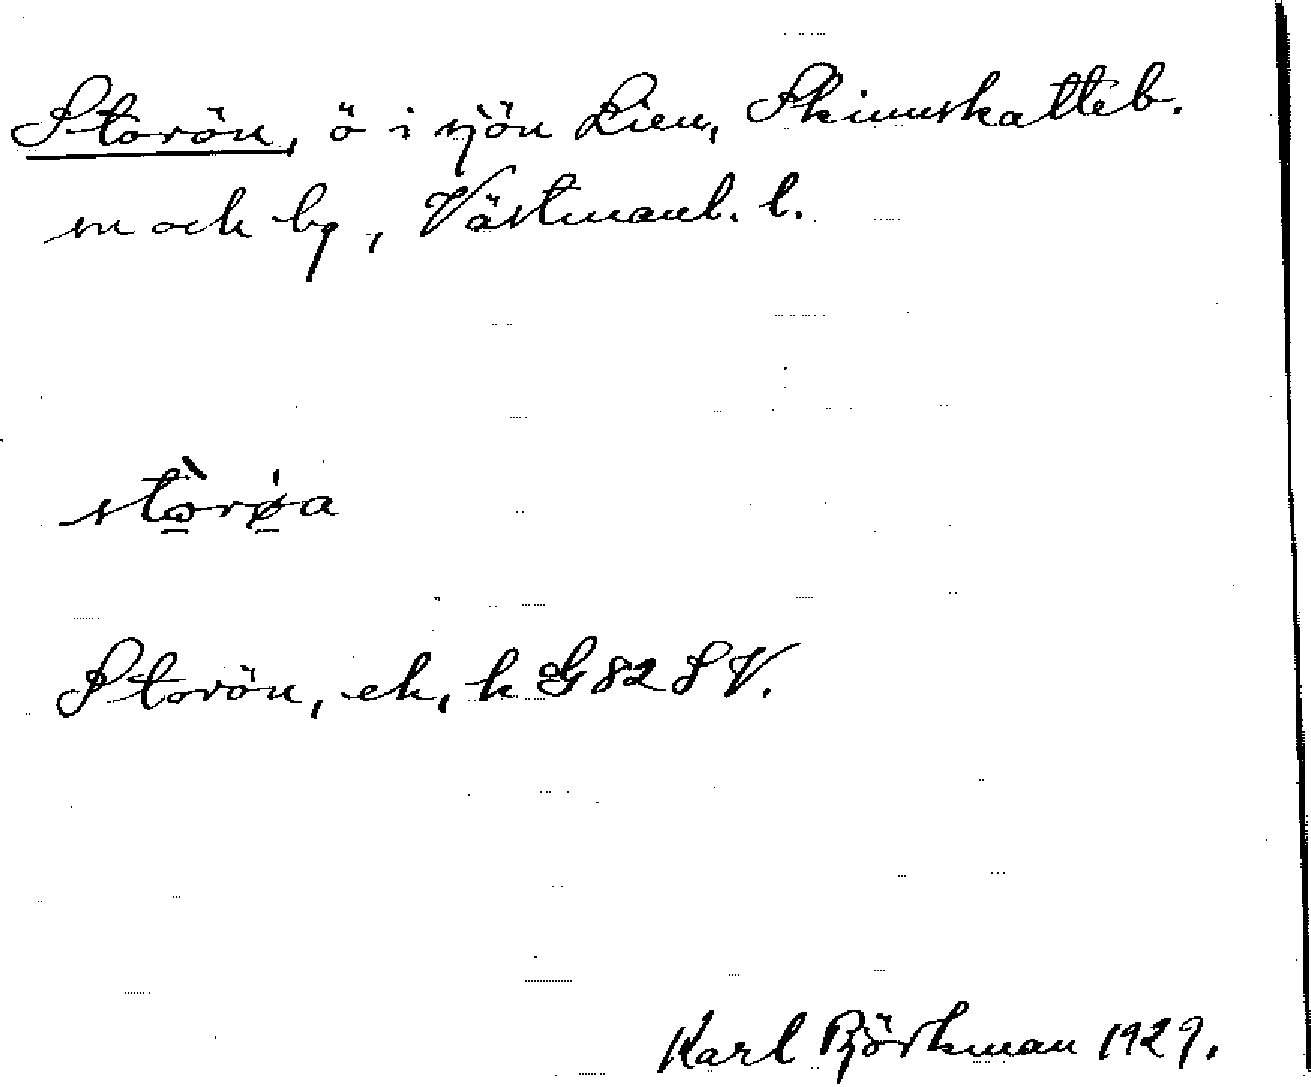 Storön, ö i sjön Lien, Skinnskatteb.
sn och bg, Västmanl. l.
stòrø̀a
Storön, ek, k G 82 S V.
Karl Björkman 1929.